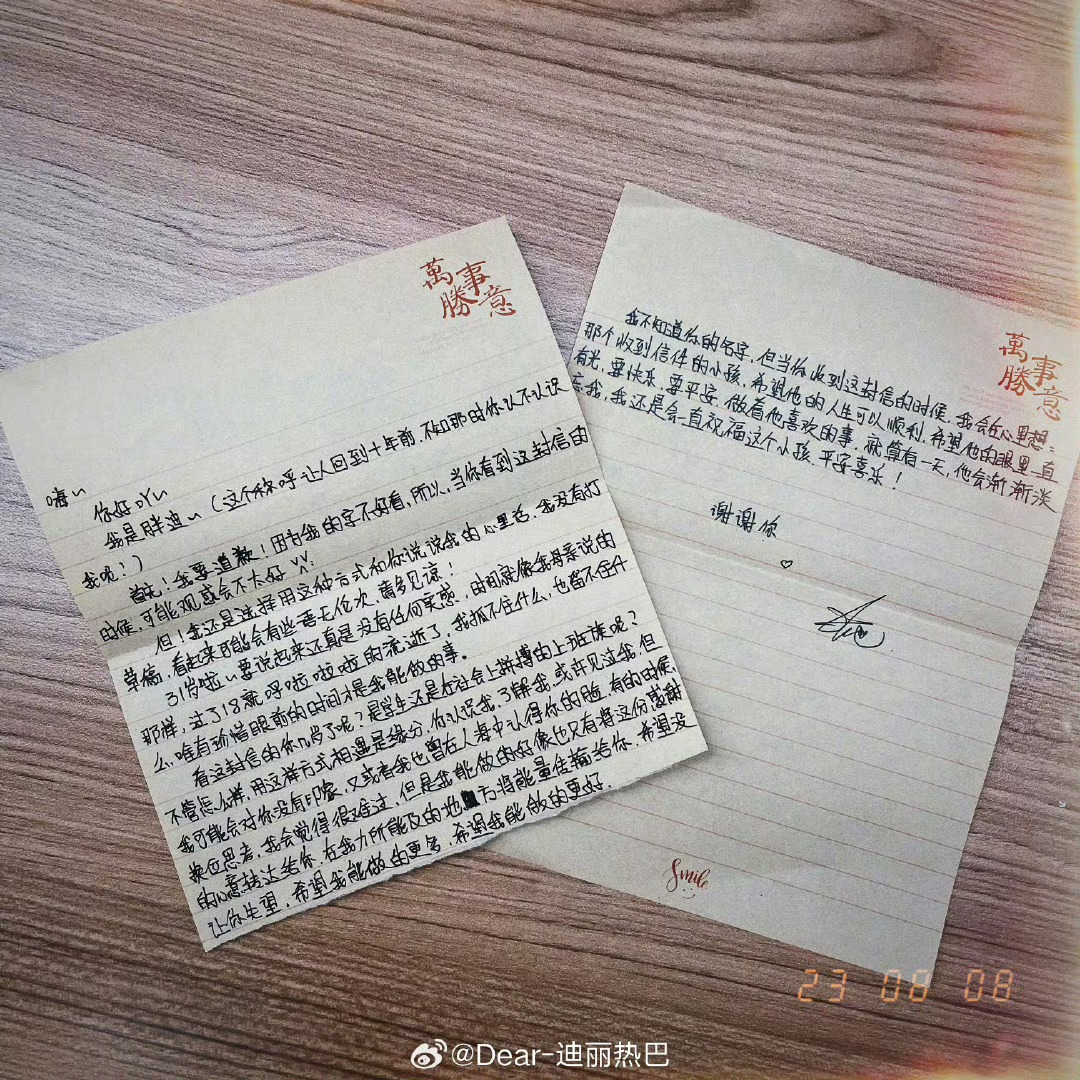 萬事
勝意
嗨~
你好吖~
我是胖迪~(这个称呼让人回到十年前,不知那时你认不认识
我呢?)
首先!我要道歉!因为我的字不好看,所以,当你看到这封信的
时候,可能观感会不太好
但!我还是选择用这种方式和你说说我的心里话,我没有打
草稿,看起来可能会有些语无伦次,请多见谅!
31岁啦~要说起来还真是没有任何实感,时间就像我母亲说的
那样,过了18就呼啦啦啦的流逝了,我抓不住什么,也留不住什
么,唯有珍惜眼前的时间才是我能做的事。
看这封信的你几岁了呢?是学生还是在社会上拼搏的上班族呢?
不管怎么样,用这样方式相遇是缘分,你认识我,了解我,或许见过我,但
我可能会对你没有印象,又或者我也曾在人海中认得你的脸,有的时候
换位思考,我会觉得很难过,但是我能做的好像也只有将这份感谢
的心意转达给你,在我力所能及的地方将能量传输给你,希望没
让你失望,希望我能做的更多,希望我能做的更好.
萬事
勝意
我不知道你的名字,但当你收到这封信的时候,我会在心里想:
那个收到信件的小孩,希望他的人生可以顺利,希望他的眼里一直
有光,要快乐,要平安,做着他喜欢的事,就算有一天,他会渐渐淡
忘我,我还是会一直祝福这个小孩,平安喜乐!
谢谢你
Smile
23 08 08
@Dear-迪丽热巴